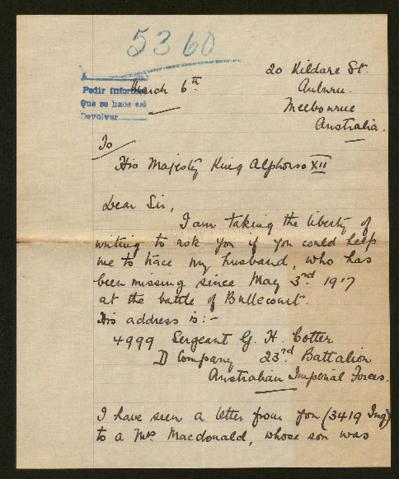 5360
A
Pedir informes
Que se hace así
Devolver
March 6th
20 Kildare St.
Auburn.
Melbourne
Australia.
To
His Majesty King Alphonso XII
Dear Sir,
I am taking the liberty of
writing to ask you if you could help
me to trace my husband, who has
been missing since May 3rd 1917
at the battle of Bullecourt.
His address is:-
4999 Sergeant G. H. Cotter
D Company 23rd Battalion
Australian Imperial Forces.
I have seen a letter from you (3419 Ing)
to a Mrs Macdonald, whose son was